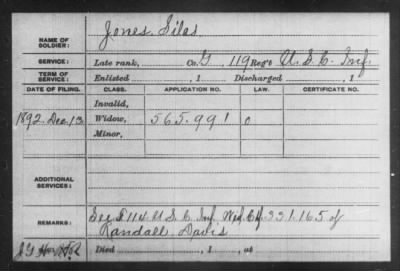 NAME OF SOLDIER: Jones, Silas
SERVICE: Late rank, Co. G, 119 Reg't U. S. C. Inf.
TERM OF SERVICE: Enlisted , 1 Discharged , 1
DATE OF FILING. CLASS. APPLICATION NO. LAW. CERTIFICATE NO.
Invalid,
1892. Dec. 13 Widow, 565.991 0
Minor,
ADDITIONAL SERVICES:
REMARKS: See 114 U S C Inf. Wid. Cf 331.165 of
Randall Davis
Died , 1 , at